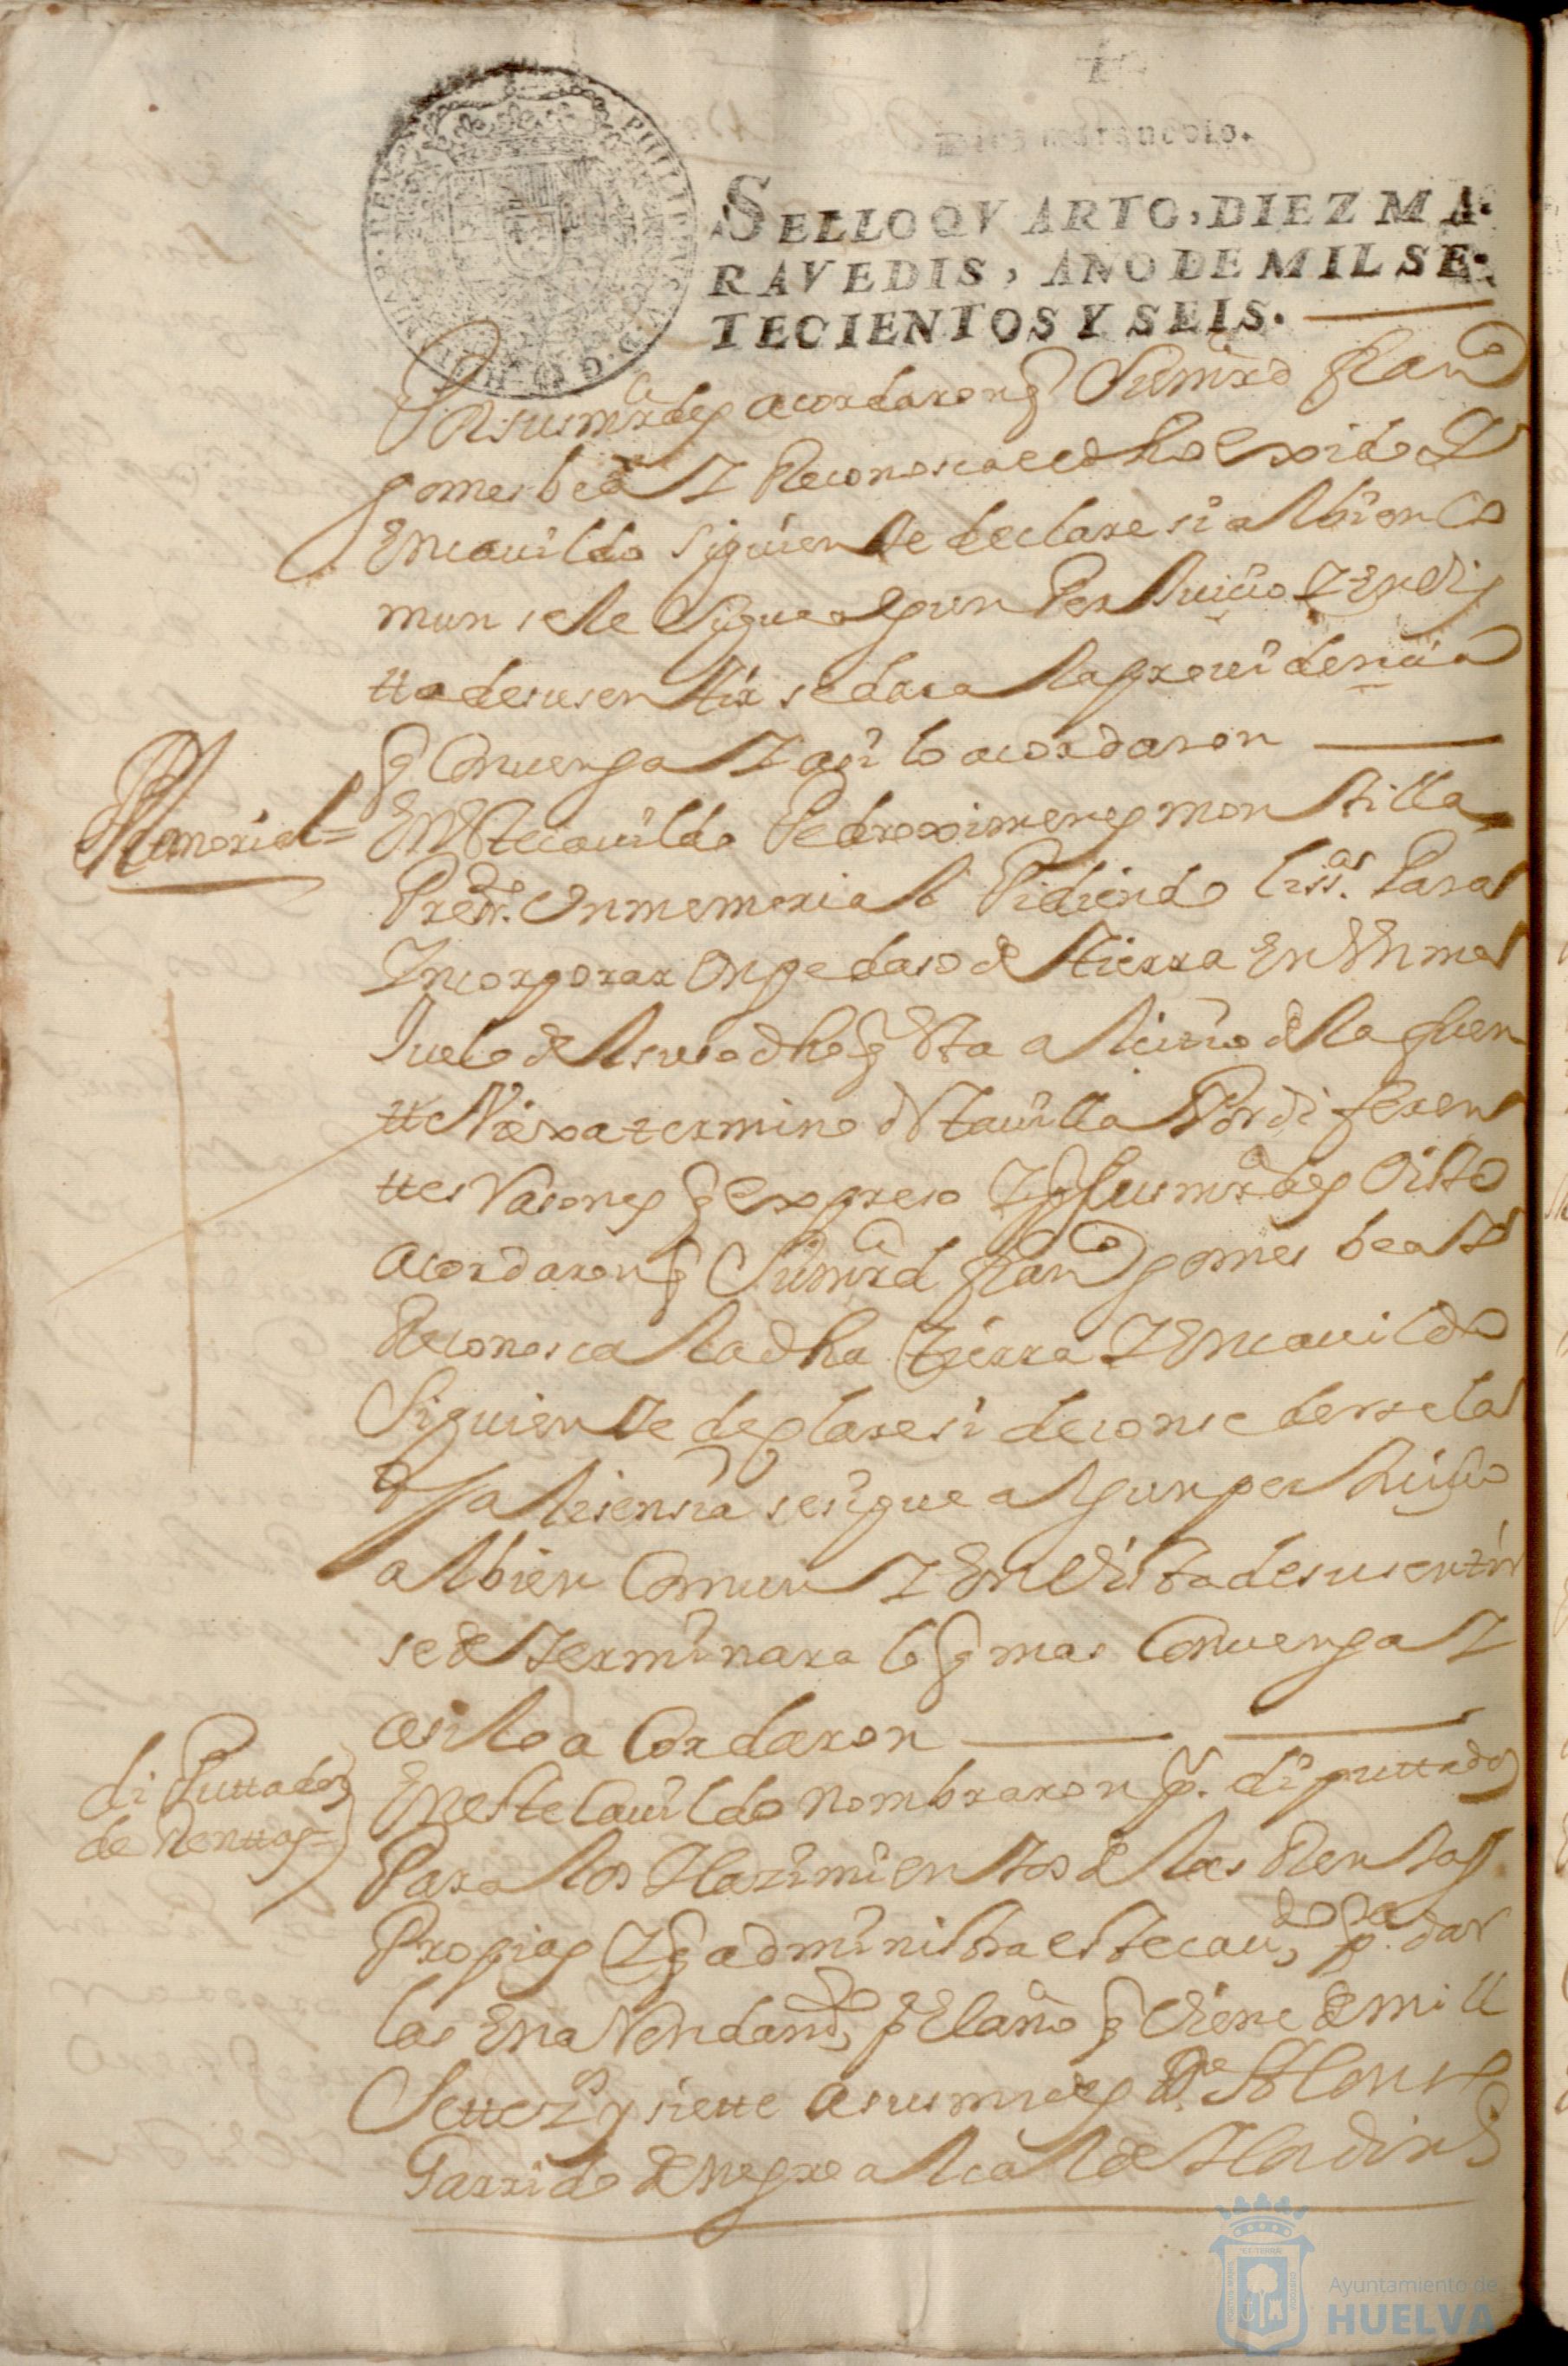 SELLO QVARTO, DIEZ MA-
RAVEDIS, AÑO DE MIL SE-
TECIENTOS Y SEIS.
sus mrdes acordaron q Su mrd fran co
gomes bea Y Reconosca el dho exido Y
En cauildo siguiente declare si al bien co
mun se le sigue algun Perluicio Y En Vis
tta de su sentir se dara la prouidencia
q Conuenga Y asi lo acordaron
Memorial=
En Este cauildo Pedro ximenes montilla
Presto. Un memorial Pidiendo liss.as Para
Yncorporar Un pedaso de tierra En Un ma
Juelo del suso dho q Esta al sitio de la fuen
tte Viexa termino d Esta uilla Por diferen
ttes Rasones q expreso Y q sus mrdes Visto
acordaron q Su mrd fran co gomes bea Y
Reconosca la dha tierra Y En cauildo
Siguiente declare si de consederse la
dha lisensia se sigue algun perluicio
al bien Comun Y En Vista de su sentir
se determinara lo q mas Conuenga Y
asi lo a Cordaron
diPuttados
de Renttas=
En este Cauildo nombraron p. diputtados
Para los Hazimientos de las Rentas
Propias Y q administra este cau.do pa. dar
las En a Rendam.to p El año q Viene de mill
Settez.s y siette a sus mrdes Dn Alonso
Garrido de negre alcalde Hordin.o
Ayuntamiento de
HUELVA